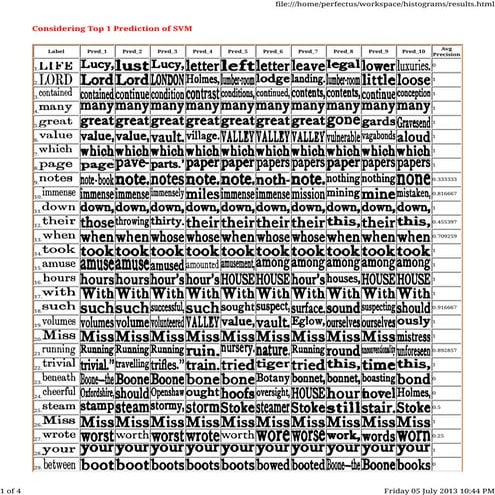 file:///home/perfectus/workspace/histograms/results.html
Considering Top 1 Prediction of SVM
Label Pred_1 Pred_2 Pred_3 Pred_4 Pred_5 Pred_6 Pred_7 Pred_8 Pred_9 Pred_10 Avg Precision
1. LIFE Lucy, lust Lucy, letter left letter leave legal lower luxuries. 0
2. LORD Lord Lord LONDON Holmes, lumber-room lodge landing. lumber-room little loose 1
3. contained contained continue condition contrast conditions, continued, contents, contents, continue conception 1
4. many many many many many many many many many many many 1
5. great great great great great great great great gone gards Gravesend 1
6. value value, value, vault. village. VALLEY VALLEY VALLEY vulnerable vagabonds aloud 1
7. which which which which which which which which which which which 1
8. page page pave- parts.' paper paper papers paper papers papers papers 1
9. notes note-book note. notes note. note. noth- note. nothing nothing none 0.333333
10. immense immense immense immensely miles immense immense mission mining mine mistaken, 0.816667
11. down down, down, down, down, down, down, down, down, down, down, 1
12. their those throwing thirty. their their their their this, their this, 0.455397
13. when when when whose whose whose when whose when when when 0.709259
14. took took took took took took took took took took took 1
15. amuse amuse amuse amused amounted amusement, among among among among among 1
16. hours hours hours hour's hours' HOUSE HOUSE hour's houses, HOUSE HOUSE 1
17. with With With With With With With With With With With 1
18. such such such successful, such sought suspect, surface. sound suspecting should 0.916667
19. volumes volumes volume volunteered VALLEY value, vault. Eglow, ourselves ourselves ously 1
20. Miss Miss Miss Miss Miss Miss Miss Miss Miss Miss mistress 1
21. running Running Running Running ruin. nursery. nature. Running round unconventionality unforeseen 0.892857
22. trivial trivial." travelling trifles." train. tried tiger tried this, time this, 1
23. beneath Boone—the Boone Boone bone bone Botany bonnet, bonnet, boasting bond 0
24. cheerful Oxfordshire, should Openshaw ought hoofs oversight, HOUSE hour novel Holmes, 0
25. steam stamp steam stormy, storm Stoke steamer Stoke still stair. Stoke 0.5
26. Miss Miss Miss Miss Miss Miss Miss Miss Miss Miss Miss 1
27. wrote worst worth worst wrote worth wore worse work, words worn 0.25
28. your your your your your your your your your your your 1
29. between boot boot boots boots boots bowed booted Boone—the Boone books 0
1 of 4 Friday 05 July 2013 10:44 PM